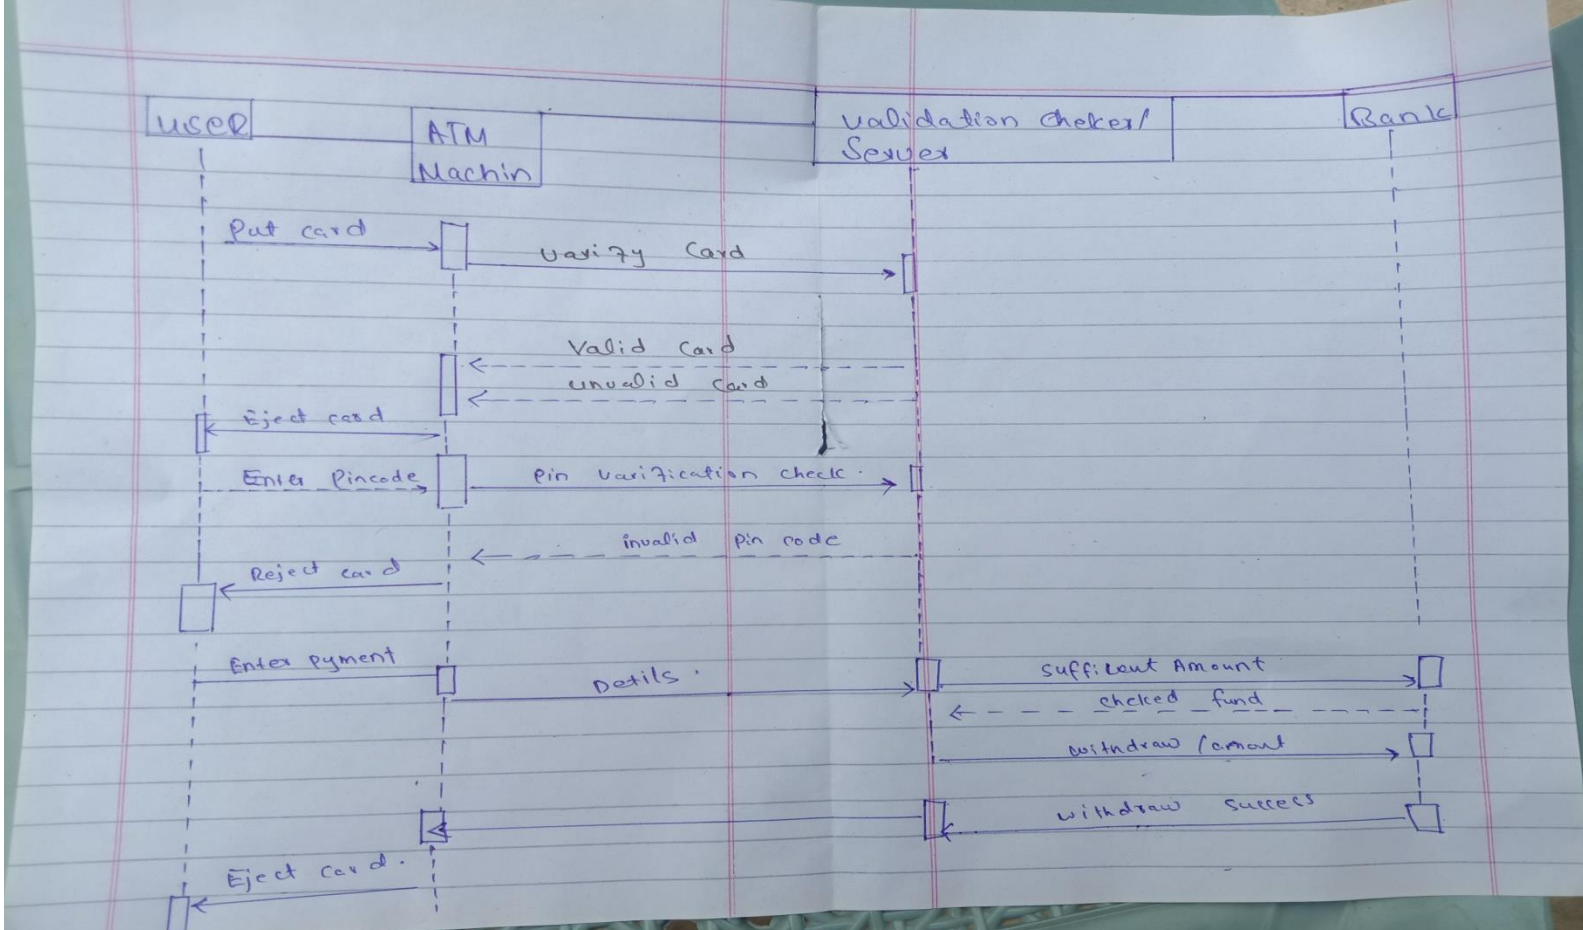 user
ATM
Machin
validation cheker/
Server
Bank
Put card
varify Card
Valid Card
unvalid card
Eject card
Enter Pincode
Pin varification check.
invalid pin code
Reject card
Enter pyment
Detils.
Sufficent Amount
cheked fund
withdraw /amout
withdraw success
Eject card.